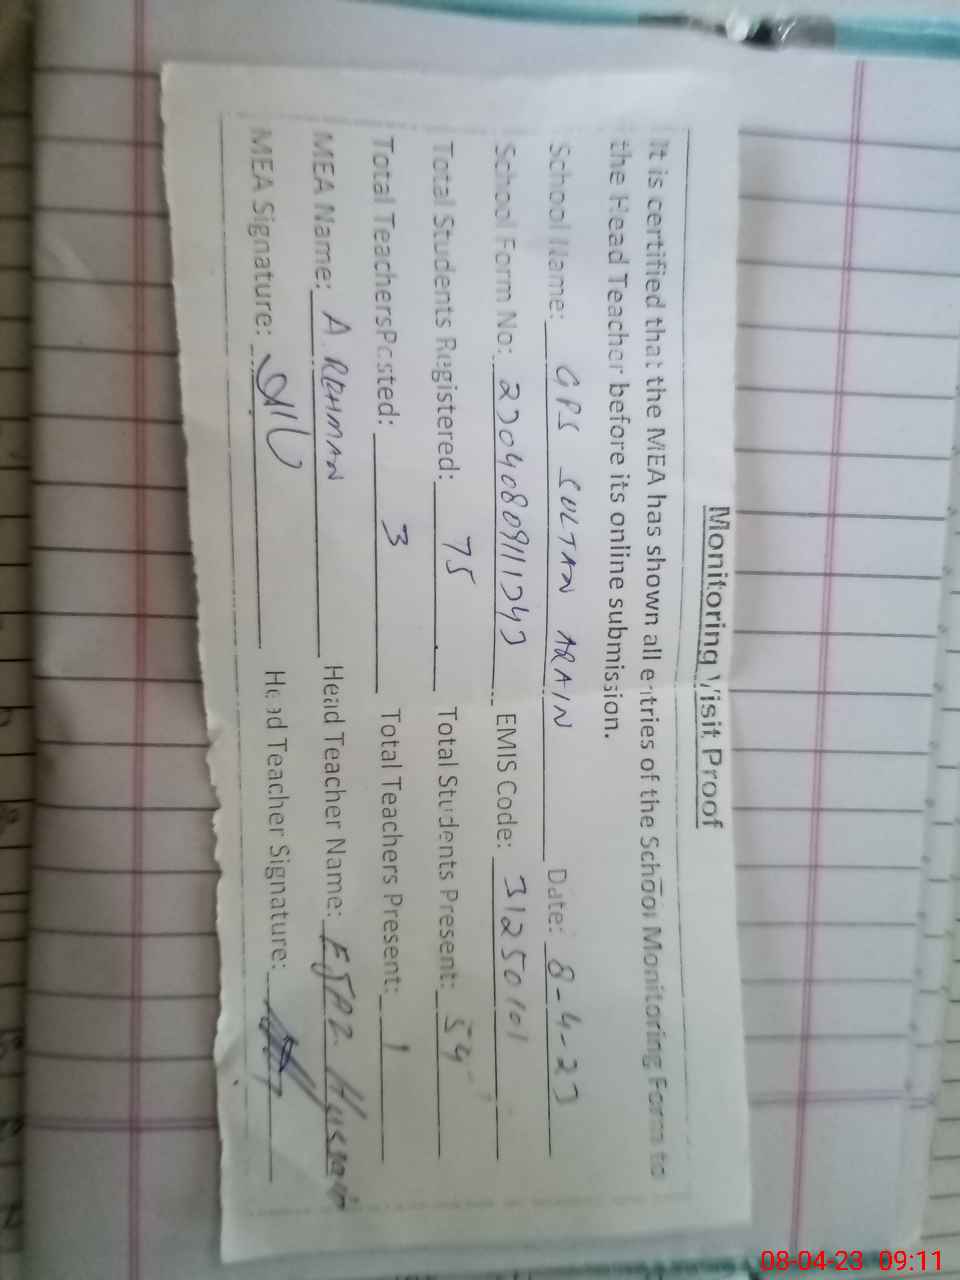 Monitoring Visit Proof
It is certified that the MEA has shown all entries of the School Monitoring Form to
the Head Teacher before its online submission.
School Name: GPS SULTAN ARAIN Date: 8-4-23
School Form No: 2304080911343 EMIS Code: 31250101
Total Students Registered: 75 Total Students Present: 54
Total Teachers Posted: 3 Total Teachers Present: 1
MEA Name: A. REHMAN Head Teacher Name: Hussain
MEA Signature: Head Teacher Signature:
08-04-23 09:11